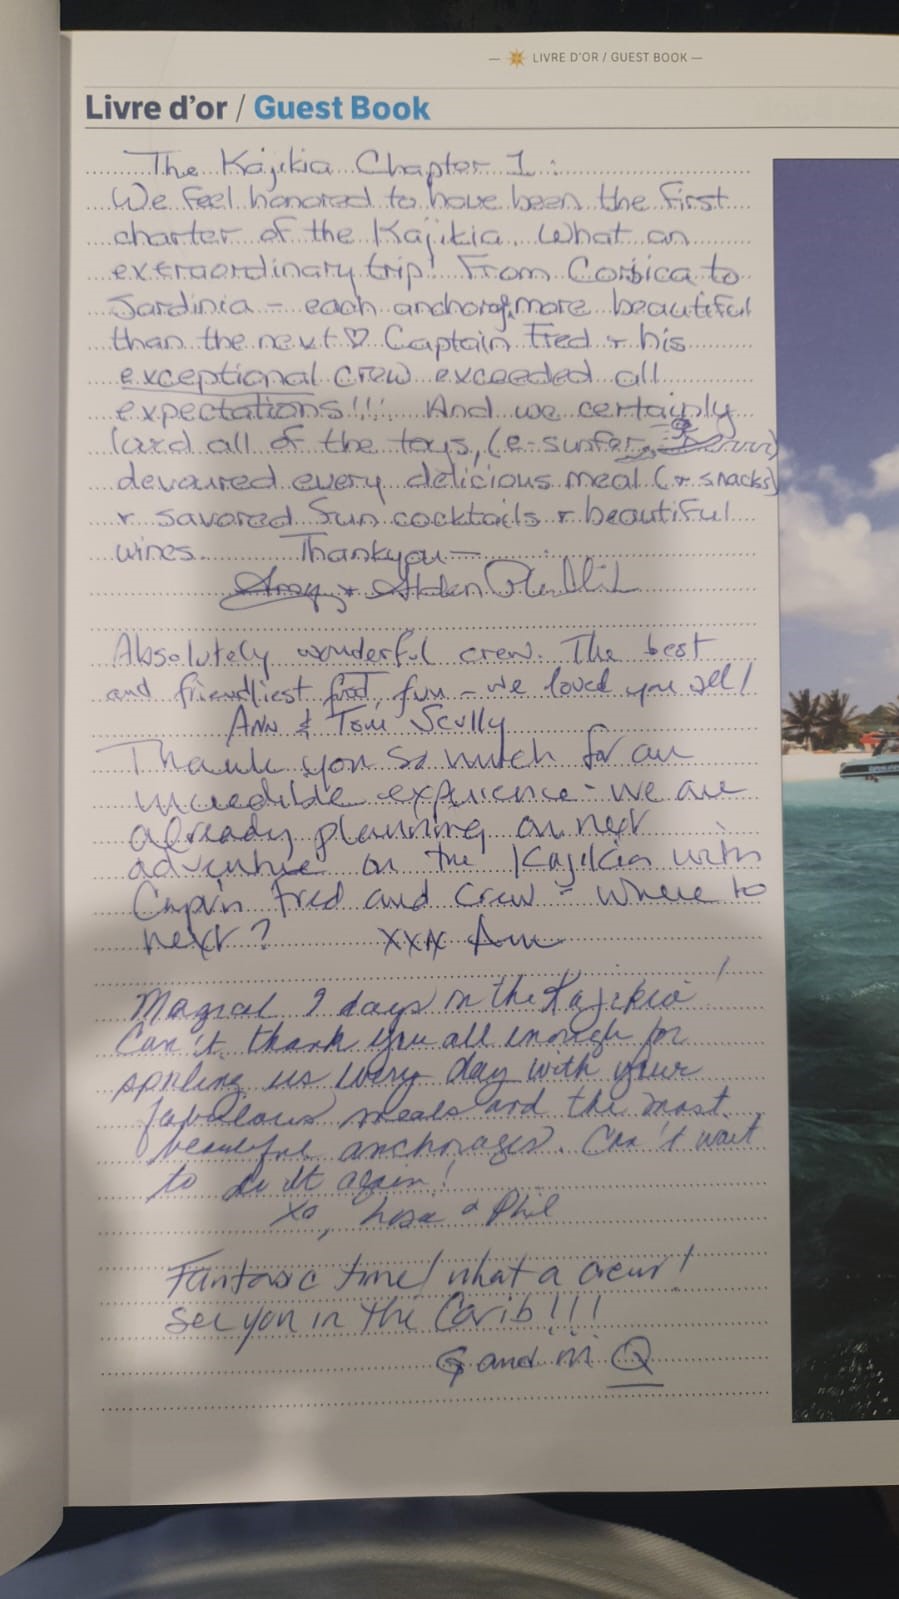 LIVRE D'OR / GUEST BOOK
Livre d'or / Guest Book
The Kajikia Chapter 1:
We feel honored to have been the first
charter of the Kajikia. What an
extraordinary trip! From Corsica to
Sardinia - each anchorage more beautiful
than the next ♡ Captain Fred + his
exceptional crew exceeded all
expectations!!! And we certainly
all of the toys, (e-surfer
devoured every delicious meal (+ snacks)
+ savored Sun cocktails + beautiful
wines. Thankyou —
Absolutely wonderful crew. The best
and friendliest food, fun - we loved you all!
Ann & Tom Scully
Thank you so much for an
incredible experience - we are
already planning our next
adventure on the Kajikia with
Cap'n Fred and crew - where to
next? XXX
Magical 9 days on the Kajikia!
Can't thank you all enough for
spoiling us every day with your
fabulous meals and the most
beautiful anchorages. Can't wait
to do it again!
xo, Lisa & Phil
Fantasic time! what a crew!
See you in the Carib!!!
G and M Q